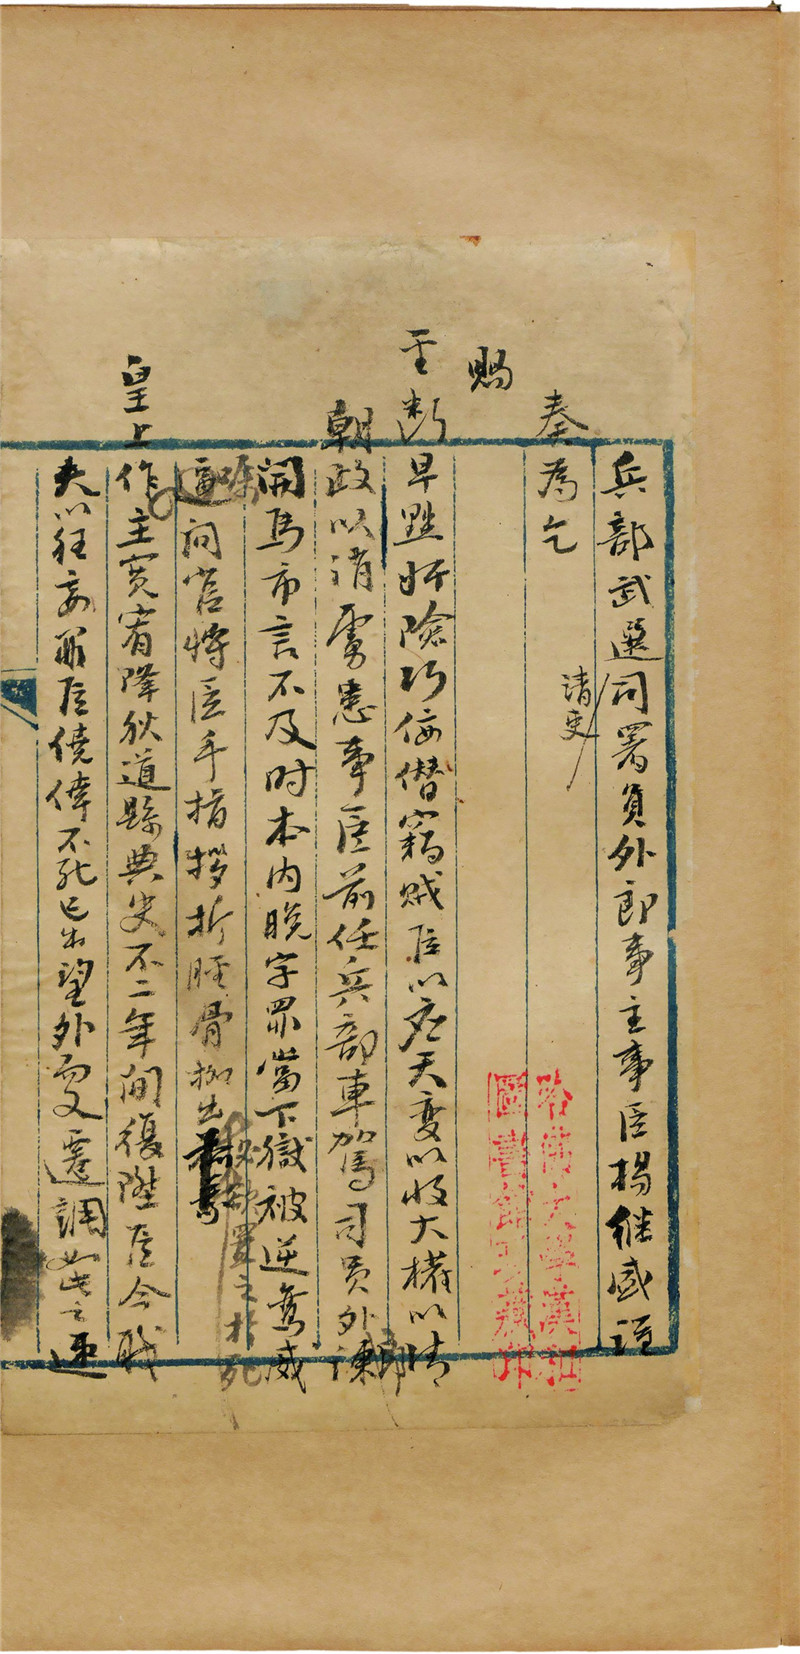 兵部武選司署員外郎事主事臣楊繼盛謹
奏為乞
請吏
賜
聖斷早
奸險巧佞僭竊賊臣以應天變以收大權以清
朝政以消虜患事臣前任兵部車駕司員外郎諫
開馬市言不及時本內脫字罪當下獄被逆鸞威
囑
逼問官將臣手指拶折脛骨
出
必欲置之於死
皇上作主寬宥降狄道縣典史不二年間復陞臣今職
夫以狂妄罪臣僥倖不死已出望外而又遷調如此之速
哈佛大學漢和圖書館珍藏印